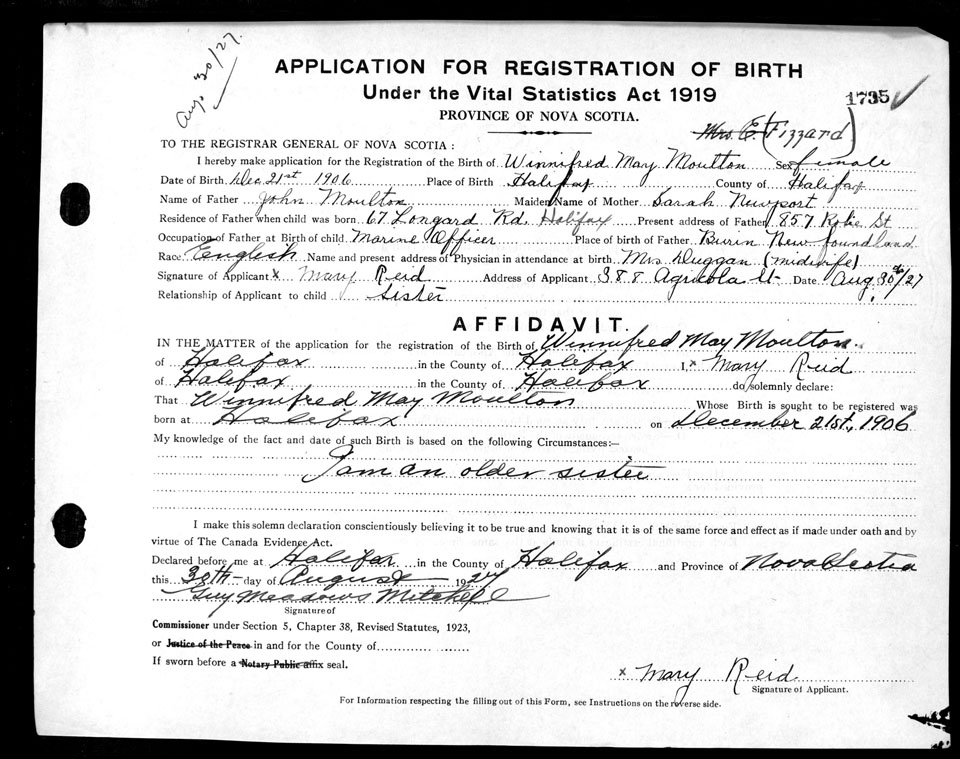 Aug. 30/27.
APPLICATION FOR REGISTRATION OF BIRTH
Under the Vital Statistics Act 1919
1735
PROVINCE OF NOVA SCOTIA.
Mrs. E. (Fizzard)
TO THE REGISTRAR GENERAL OF NOVA SCOTIA :
I hereby make application for the Registration of the Birth of Winnifred May Moulton Sex female
Date of Birth Dec. 21st 1906 Place of Birth Halifax County of Halifax
Name of Father John Moulton Maiden Name of Mother Sarah Newport
Residence of Father when child was born 67 Longard Rd. Halifax Present address of Father 857 Robie St
Occupation of Father at Birth of child Marine Officer Place of birth of Father Burin Newfoundland
Race English Name and present address of Physician in attendance at birth Mrs Duggan (midwife)
Signature of Applicant x Mary Reid Address of Applicant 388 Agricola St Date Aug. 30th/27
Relationship of Applicant to child Sister
AFFIDAVIT.
IN THE MATTER of the application for the registration of the Birth of Winnifred May Moulton
of Halifax in the County of Halifax I, x Mary Reid
of Halifax in the County of Halifax do solemnly declare:
That Winnifred May Moulton Whose Birth is sought to be registered was
born at Halifax on December 21st, 1906
My knowledge of the fact and date of such Birth is based on the following Circumstances:—
I am an older sister
I make this solemn declaration conscientiously believing it to be true and knowing that it is of the same force and effect as if made under oath and by
virtue of The Canada Evidence Act.
Declared before me at Halifax in the County of Halifax and Province of Nova Scotia
this 30th day of August 1927
Guy Meadows Mitchell
Signature of
Commissioner under Section 5, Chapter 38, Revised Statutes, 1923,
or Justice of the Peace in and for the County of
If sworn before a Notary Public affix seal.
x Mary Reid
Signature of Applicant.
For Information respecting the filling out of this Form, see Instructions on the reverse side.